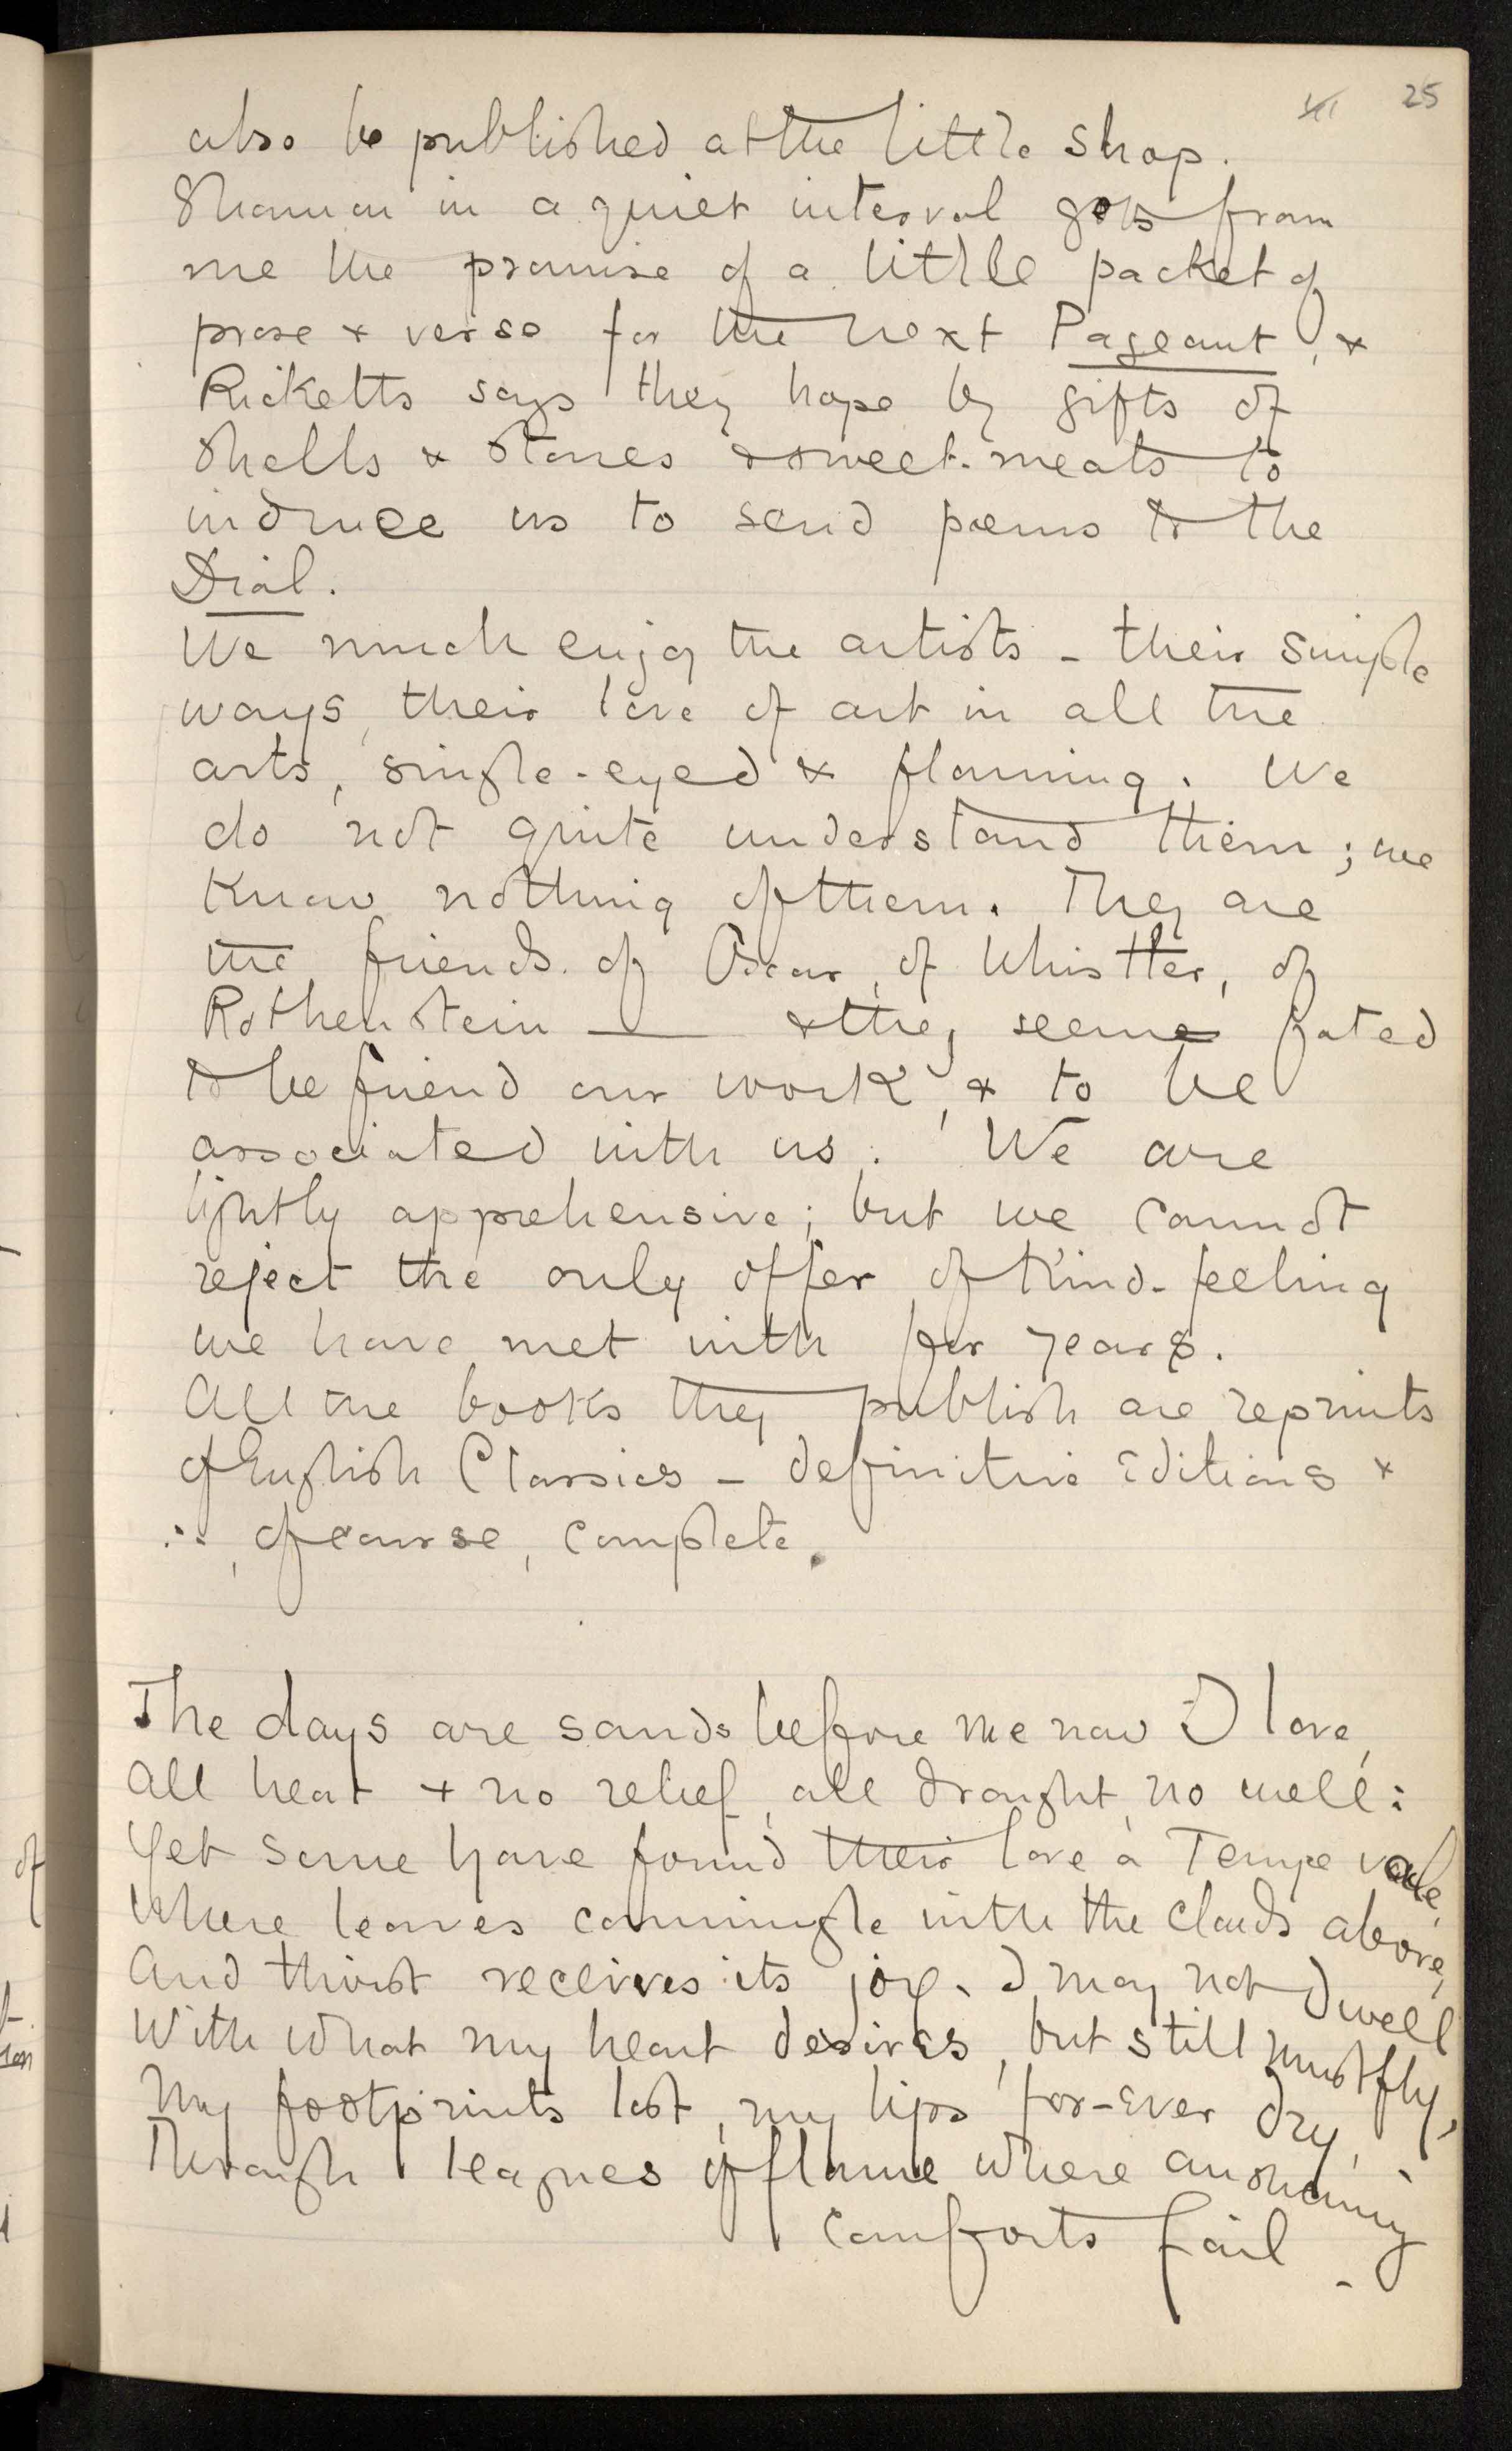 25
also be published at the little shop.
Shannon in a quiet interval gets from
me the promise of a little packet of
prose & verse for the next Pageant, &
Ricketts says they hope by gifts of
shells & stones & sweet-meats to
induce us to send poems to the
Dial.
We much enjoy the artists - their simple
ways, their love of art in all the
arts, single-eyed & flaming. We
do not quite understand them; we
know nothing of them. They are
the friends of Oscar, of Whistler, of
Rothenstein — & they seem fated
to befriend our work, & to be
associated with us. We are
lightly apprehensive; but we cannot
reject the only offer of kind-feeling
we have met with for years.
All the books they publish are reprints
of English Classics - definitive Editions &
∴, of course, complete.
The days are sands before me now O love,
All heat + no relief, all drought, no well:
Yet some have found their love a Tempe vale,
Where leaves commingle with the clouds above,
And thirst receives its joy. I may not dwell
With what my heart desires, but still must fly,
My footprints lost, my lips for-ever dry,
Through leagues of flame where
comforts fail -
of